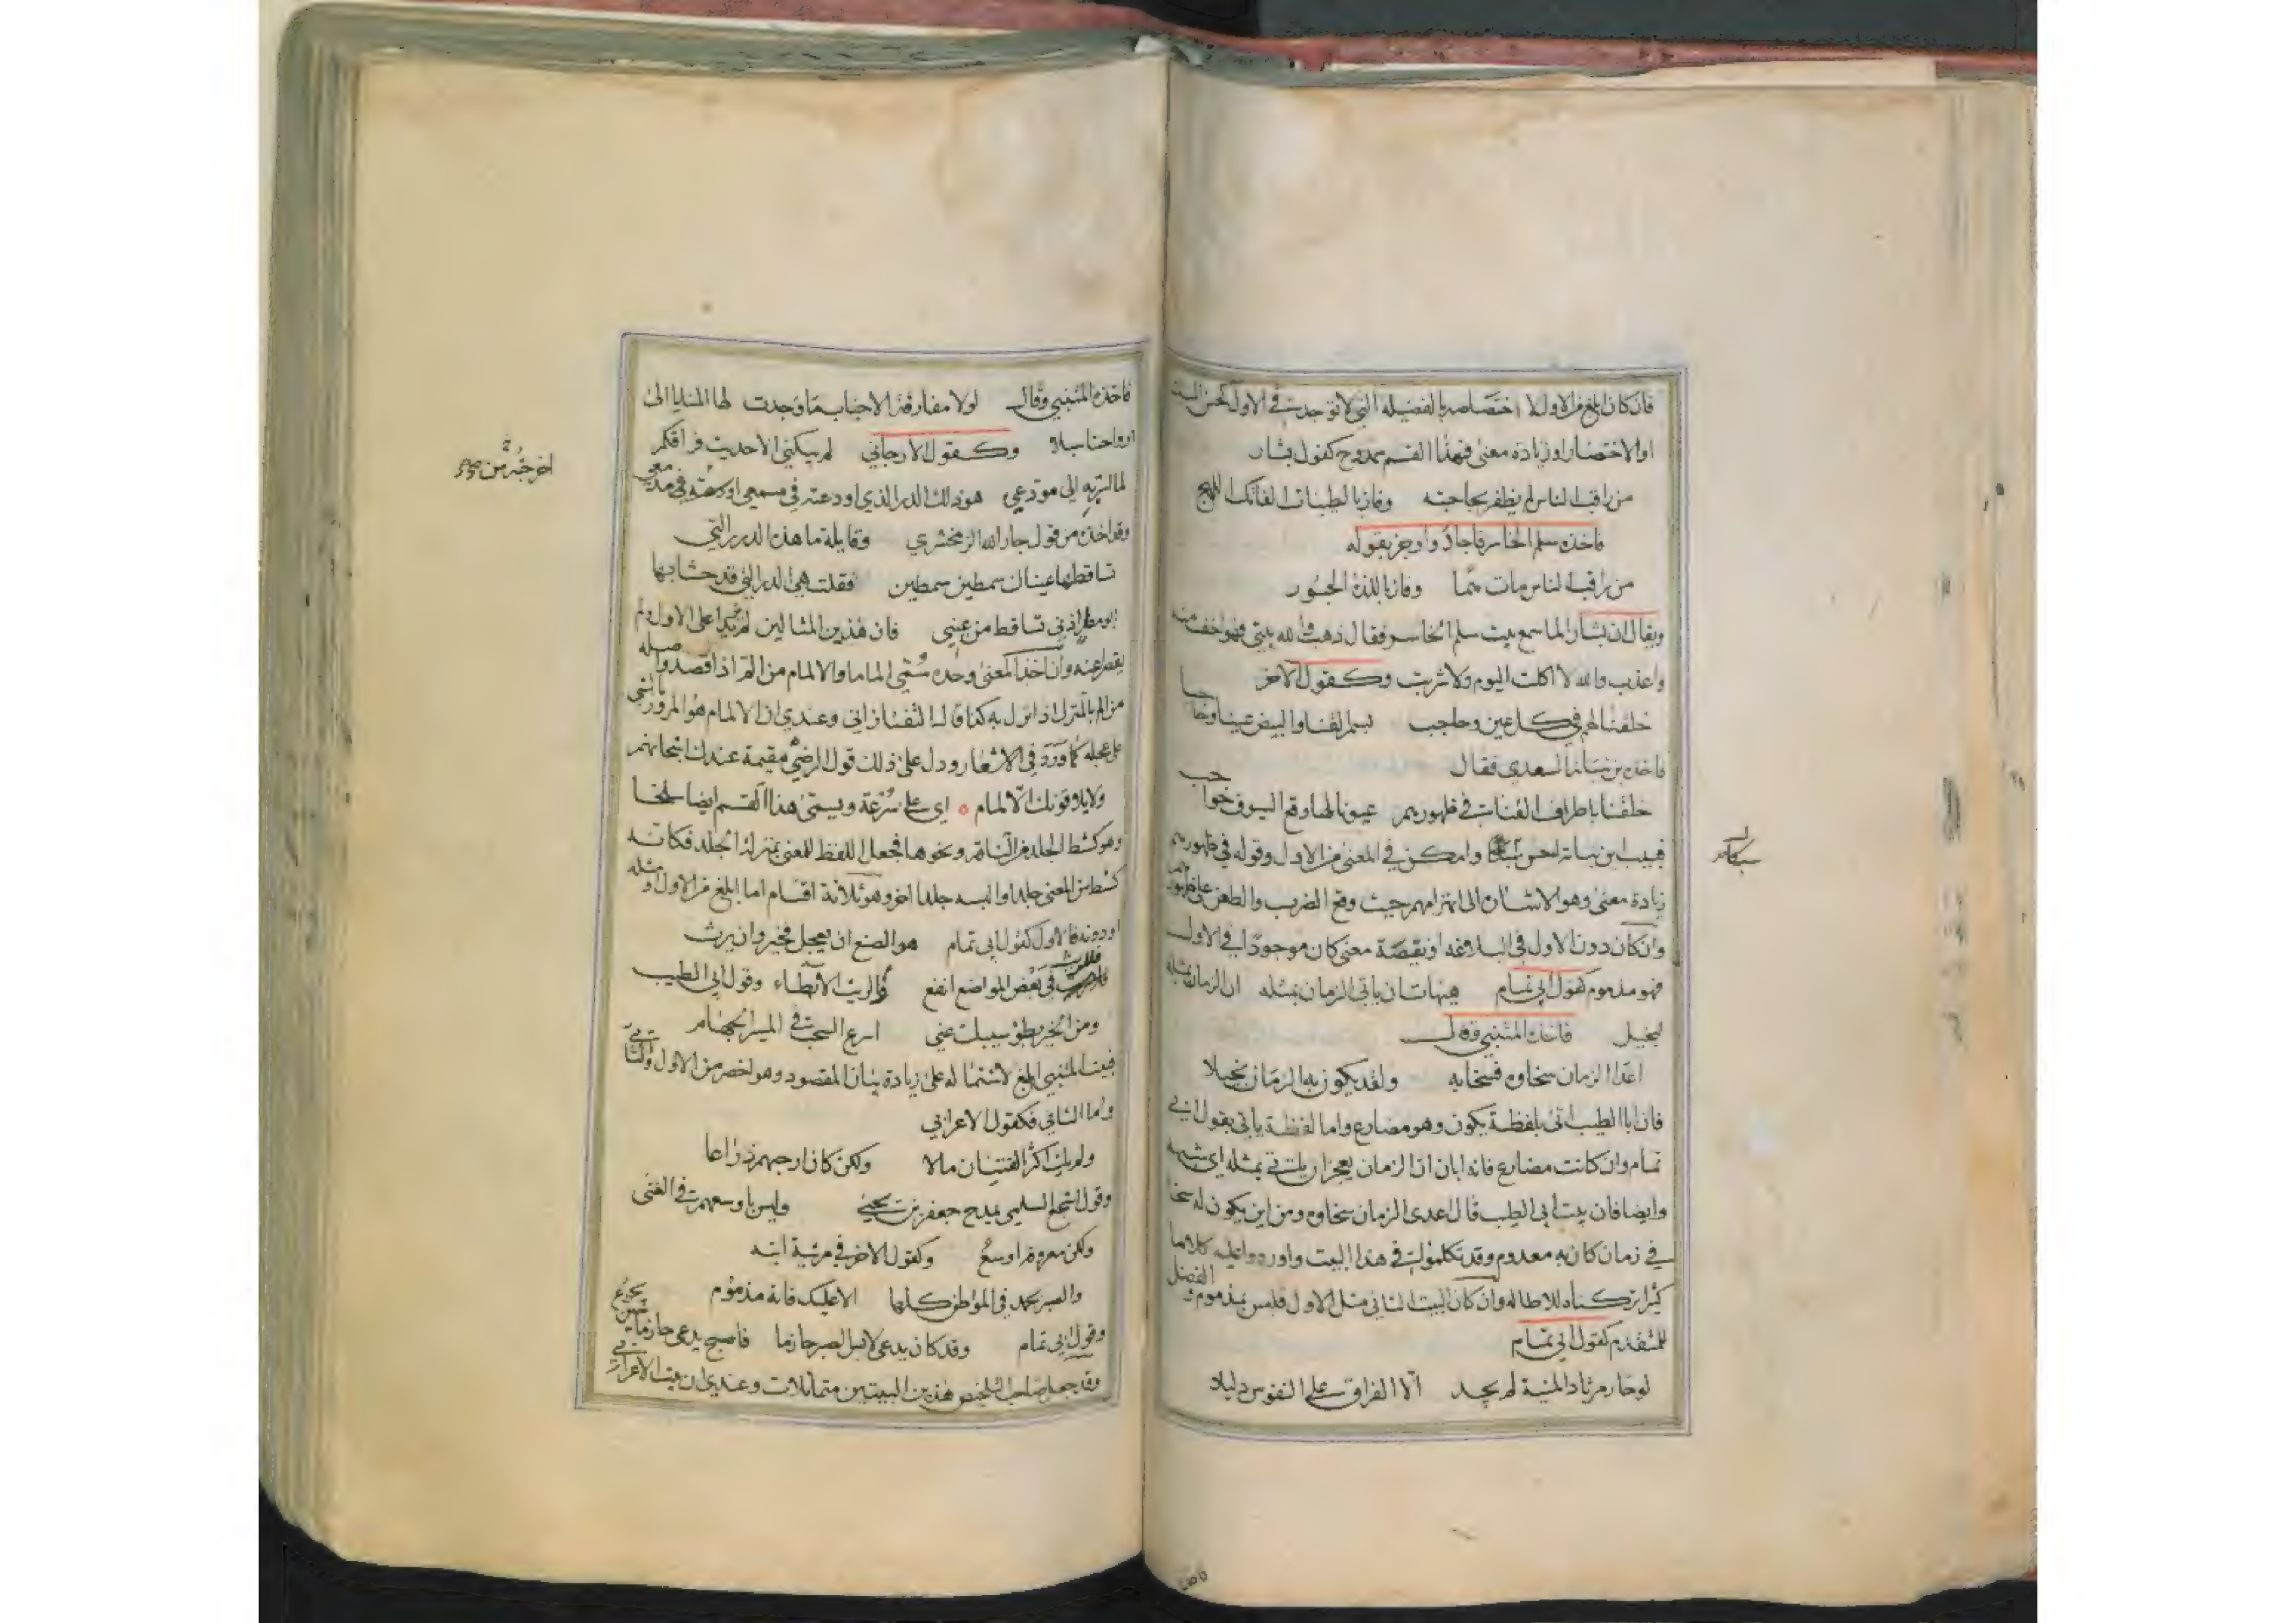 فان كان ابلغ من الاول لاختصاصه بالفضيله التي لا توجد في الاول كحسن السبك
او الاختصار او زيادة معنى فهذا القسم ممدوح كقول بشار
من راقب الناس لم يظفر بحاجته وفاز بالطيبات الفاتك اللهج
فاخذه سلم الخاسر فاجاد واوجز بقوله
من راقب الناس مات همّا وفاز باللذة الجسور
ويقال ان بشار الما سمع بيت سلم الخاسر فقال ذهب والله بيتي فهو اخف منه
واعذب والله لا اكلت اليوم ولا شربت وكقول الاخر
خلقنا لهم في كل عين وحاجب بسمر القنا والبيض عينا وحاجبا
فاخذه بن نباتة السعدي فقال
خلقنا باطراف القنات في ظهورهم عيونا لها وقع السيوف حواجب
فبيت ابن نباتة احسن سبكا وامكن في المعنى من الاول وقوله في ظهورهم
سبكا
زيادة معنى وهو الاشان الى انهزامهم حيث وقع الضرب والطعن على ظهورهم
وان كان دون الاول في البلاغه او نقيصة معنى كان موجودًا في الاول
فهو مذموم كقول ابي تمام هيهات ان ياتي الزمان بمثله ان الزمان بمثله
لبخيل فاخذه المتنبي وقال
اعدا الزمان سخاوه فسخا به ولقد يكون به الزمان بخيلا
فان ابا الطيب اتى بلفظة يكون وهو مضارع واما لفظة ياتي بقول ابي
تمام وان كانت مضارع فانه ابان ان الزمان يعجز ان ياتي بمثله اي شبهه
وايضا فان بيت ابي الطيب قال اعدى الزمان سخاوه ومن اين يكون له سخا
في زمان كان به معدوم وقد تكلموا في هذا البيت واوردوا عليه كلاما
كثيرا تركناه للاطاله وان كان البيت الثاني مثل الاول فليس بمذموم والفضل
للمتقدم كقول ابي تمام
لو حار مرتاد المنية لم يجد الّا الفراق على النفوس دليلا
فاخذه المتنبي وقال لولا مفارقة الاحباب ما وجدت لها المنايا الى
ارواحنا سبلا وكقول الارجاني لم يبكني الا حديث فراقكم
لما اسر به الى مودعي هو ذلك الدر الذي اودعته في مسمعي اودعته في مدمعي
اخرجته من
وقد اخذه من قول جار الله الزمخشري وقايلة ما هذه الدرر التي
تساقطها عيناك سمطين سمطين فقلت هي الدر التي قد حشا بها
ابو مضر اذني تساقط من عيني فان هذين المثالين لم يزيدا على الاول ولم
يقصرا عنه وان اخذ المعنى وحده سُمّي الماما والالمام من المّ اذا قصد واصله
من الم بالمنزل اذا نزل به كما قال التفتازاني وعندي ان الالمام هو المرور بالشي
على عجله كما ورد في الاشعار ودل على ذلك قول الرضي مقيمة عندك ابتحابهم
ولايلا وقوتك الّا لمام ٥ اي على سُرعة ويسمى هذا القسم ايضا سلخا
وهو كشط الجلد من الشاة ونحوها فجعل اللفظ للمعنى بمنزلة الجلد فكانه
كشط من المعنى جلدا والبسه جلدا اخر وهو ثلاثة اقسام اما ابلغ من الاول او مثله
او دونه فالاول كقول ابي تمام هو الصنع ان يعجل فخير وان يرث
فللريث في بعض المواضع انفع فالريث الابطاء وقول ابي الطيب
ومن الخير بطؤ سيبك عني اسرع السحب في المسير الجهام
فبيت المتنبي ابلغ لاشتماله على زيادة بيان المقصود وهو اخصر من الاول والثاني
واما الثاني فكقول الاعرابي
ولم يك اكثر الفتيان مالا ولكن كان ارحبهم ذراعا
وقول اشجع السلمي يمدح جعفر بن يحيى وليس باوسعهم في الغنى
ولكن معروفه اوسع وكقول الاخر في مرثية ابنه
والصبر يحمد في المواطن كلها الا عليك فانه مذموم
وقول ابي تمام وقد كان يدعى لابس الصبر حازما فاصبح يدعى حازما حين يجزع
وقد جعل صاحب التلخيص هذين البيتين متماثلات وعندي ان بيت الاعرابي